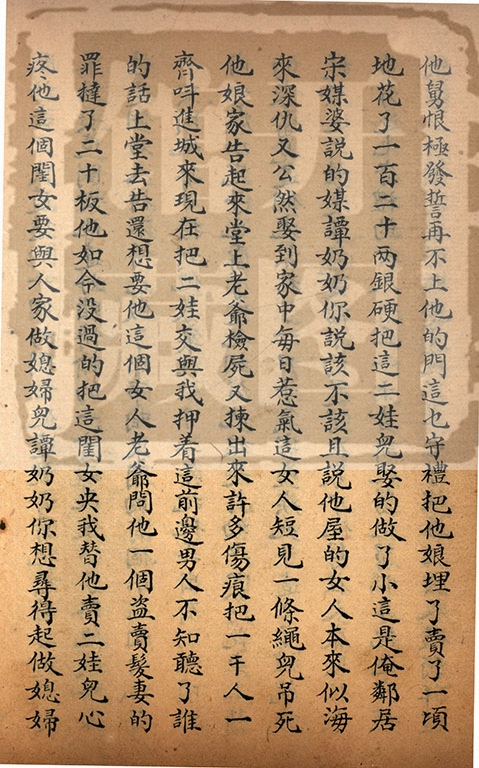 他舅恨極發誓再不上他的門這乜守禮把他娘埋了賣了一頃
地花了一百二十两銀硬把這二娃兒娶的做了小這是俺鄰居
宋媒婆說的媒譚奶奶你說該不該且說他屋的女人本來似海
來深仇又公然娶到家中每日惹氣這女人短見一條繩兒吊死
他娘家告起來堂上老爺檢屍又揀出來許多傷痕把一干人一
齊呌進城來現在把二娃交與我押着這前邊男人不知聽了誰
的話上堂去告還想要他這個女人老爺問他一個盗賣髮妻的
罪撻了二十板他如今没過的把這閨女央我替他賣二娃兒心
疼他這個閨女要與人家做媳婦兒譚奶奶你想尋得起做媳婦